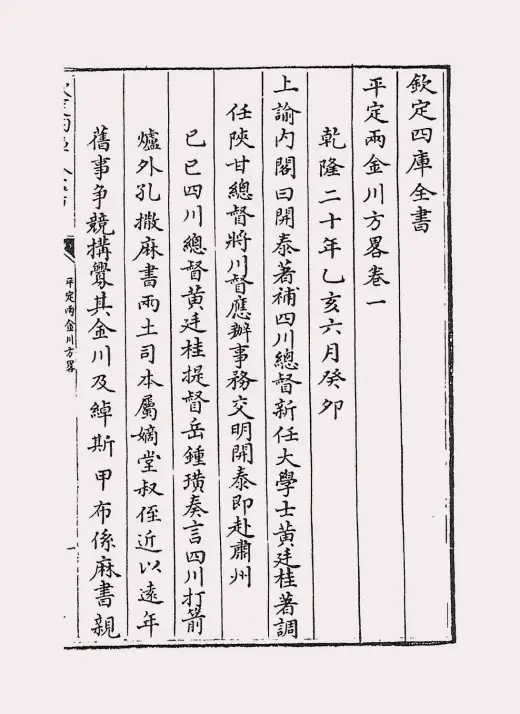 欽定四庫全書
平定兩金川方畧卷一
乾隆二十年乙亥六月癸卯
上諭內閣曰開泰著補四川總督新任大學士黃廷桂著調
任陝甘總督將川督應辦事務交明開泰即赴肅州
己巳四川總督黃廷桂提督岳鍾璜奏言四川打箭
爐外孔撒麻書兩土司本屬嫡堂叔侄近以遠年
舊事爭競搆釁其金川及綽斯甲布係麻書親
平定兩金川方畧
一